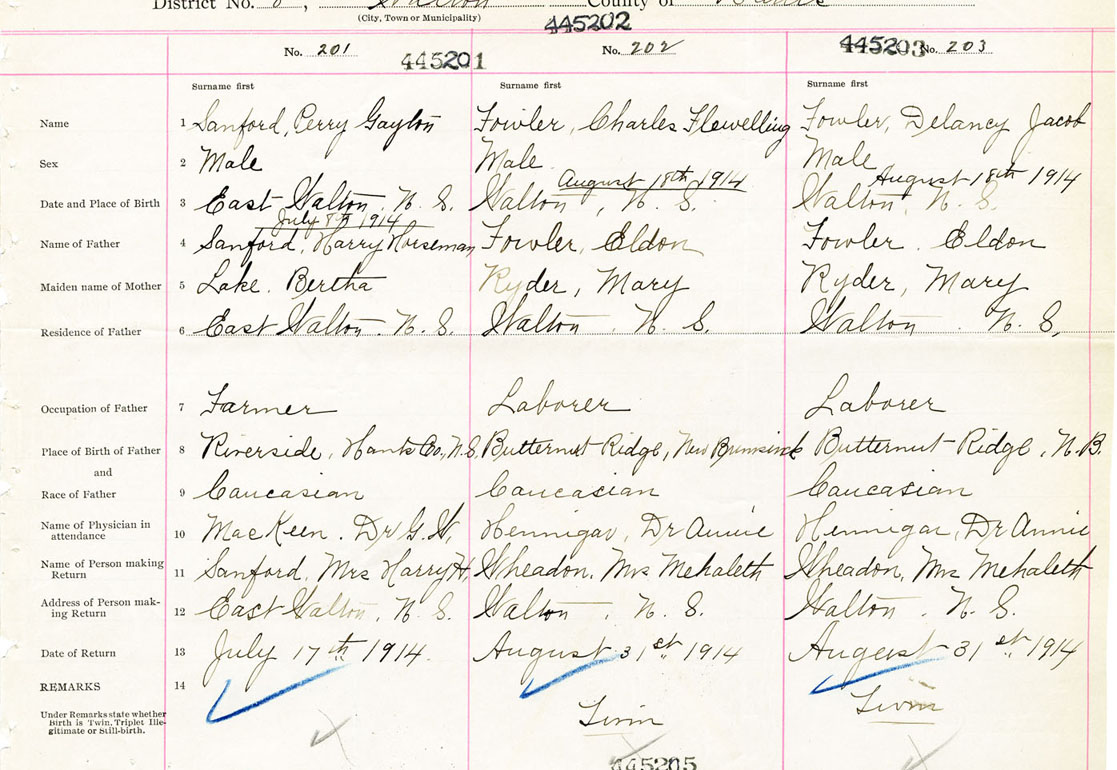 District No. 8, Walton County of Hants
(City, Town or Municipality)
445202
No. 201 445201 No. 202 445203 No. 203
Surname first Surname first Surname first
Name 1 Sanford, Perry Gaylon Fowler, Charles Flewelling Fowler, Delancy Jacob
Sex 2 Male Male Male
August 18th 1914 August 18th 1914
Date and Place of Birth 3 East Walton, N. S. Walton, N. S. Walton, N. S.
July 8th 1914
Name of Father 4 Sanford, Harry Horseman Fowler, Eldon Fowler. Eldon
Maiden name of Mother 5 Lake. Bertha Ryder, Mary Ryder, Mary
Residence of Father 6 East Walton. N. S. Walton. N. S. Walton. N. S.
Occupation of Father 7 Farmer Laborer Laborer
Place of Birth of Father 8 Riverside, Hants Co, N.S. Butternut Ridge, New Brunswick Butternut Ridge, N.B.
and
Race of Father 9 Caucasian Caucasian Caucasian
Name of Physician in
attendance 10 MacKeen. Dr G. W, Hennigar, Dr Annie Hennigar, Dr Annie
Name of Person making
Return 11 Sanford, Mrs Harry H, Wheadon, Mrs Mehaleth Wheadon, Mrs Mehaleth
Address of Person mak-
ing Return 12 East Walton, N. S. Walton, N. S. Walton, N. S.
Date of Return 13 July 17th 1914. August 31st 1914 August 31st 1914
REMARKS 14
Under Remarks state whether
Birth is Twin, Triplet Ille-
gitimate or Still-birth.
Twin Twin
445205